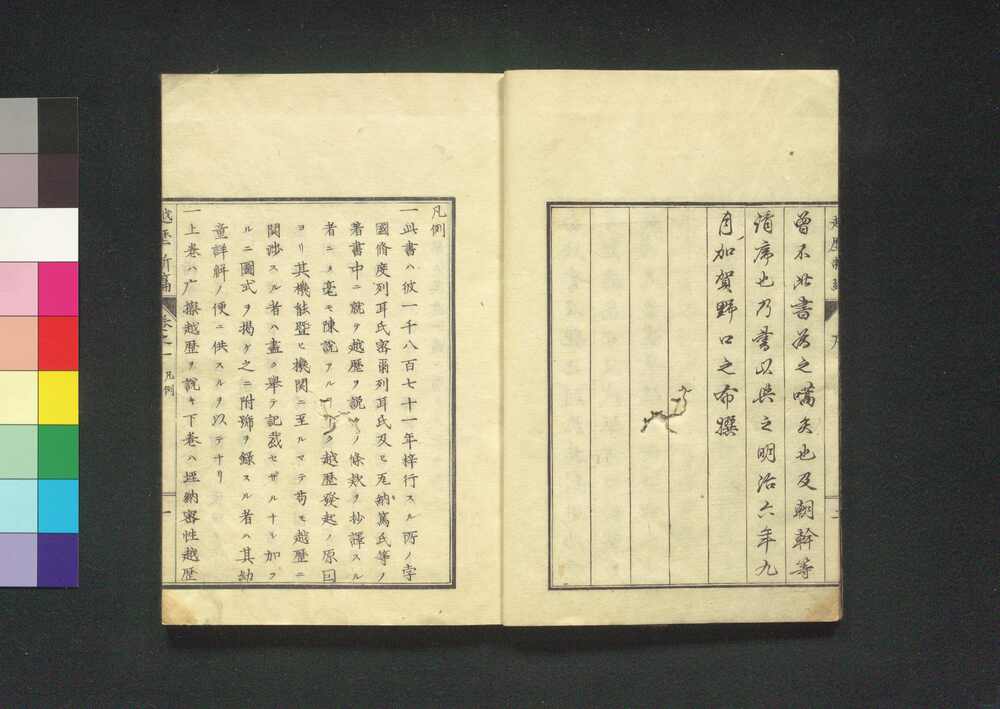 曾不il書為之嚆矢也及朝幹等
請序也乃書以與之明治六年九
月加賀野口之布撰
凡例
一此書ハ彼一千八百七十一年梓行スル所ノ孛
國脩度列耳氏窩爾列耳氏及ヒ瓦納篤氏等ノ
著書中ニ就テ越歴ヲ說クノ條欵ヲ抄譯スル
者ニメ毫モ陳說アル丁ナク越歴發起ノ原因
ヨリ其機能曁ヒ機関ニ至ルマテ苟モ越歴ニ
関涉スル者ハ盡ク舉テ記裁セザルナシ加フ
ルニ圖式ヲ揭ケ之ニ附錄スル者ハ其幼
童詳觧ノ便ニ供スルヲ以テナリ
一上卷ハ广擦越歴ヲ說キ下卷ハ埋納審性越歴
越歴新編
卷之一
凡例
一